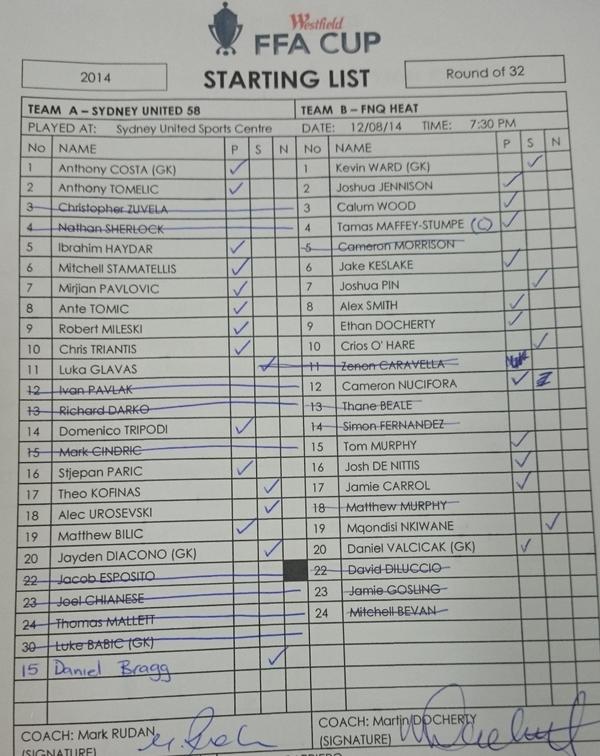 Westfield
FFA CUP
2014 STARTING LIST Round of 32
TEAM A – SYDNEY UNITED 58 TEAM B – FNQ HEAT
PLAYED AT: Sydney United Sports Centre DATE: 12/08/14 TIME: 7:30 PM
No NAME P S N No NAME P S N
1 Anthony COSTA (GK) ✓ 1 Kevin WARD (GK) ✓
2 Anthony TOMELIC ✓ 2 Joshua JENNISON ✓
3 Christopher ZUVELA 3 Calum WOOD ✓
4 Nathan SHERLOCK 4 Tamas MAFFEY-STUMPE (C) ✓
5 Ibrahim HAYDAR ✓ 5 Cameron MORRISON
6 Mitchell STAMATELLIS ✓ 6 Jake KESLAKE ✓
7 Mirjian PAVLOVIC ✓ 7 Joshua PIN ✓
8 Ante TOMIC ✓ 8 Alex SMITH ✓
9 Robert MILESKI ✓ 9 Ethan DOCHERTY ✓
10 Chris TRIANTIS ✓ 10 Crios O' HARE ✓
11 Luka GLAVAS ✓ 11 Zenon CARAVELLA
12 Ivan PAVLAK 12 Cameron NUCIFORA ✓
13 Richard DARKO 13 Thane BEALE
14 Domenico TRIPODI ✓ 14 Simon FERNANDEZ
15 Mark CINDRIC 15 Tom MURPHY ✓
16 Stjepan PARIC ✓ 16 Josh DE NITTIS ✓
17 Theo KOFINAS ✓ 17 Jamie CARROL ✓
18 Alec UROSEVSKI ✓ 18 Matthew MURPHY
19 Matthew BILIC ✓ 19 Mqondisi NKIWANE ✓
20 Jayden DIACONO (GK) ✓ 20 Daniel VALCICAK (GK) ✓
22 Jacob ESPOSITO 22 David DILUCCIO
23 Joel CHIANESE 23 Jamie GOSLING
24 Thomas MALLETT 24 Mitchell BEVAN
30 Luke BABIC (GK)
15 Daniel Bragg ✓
COACH: Mark RUDAN COACH: Martin DOCHERTY
(SIGNATURE) (SIGNATURE)